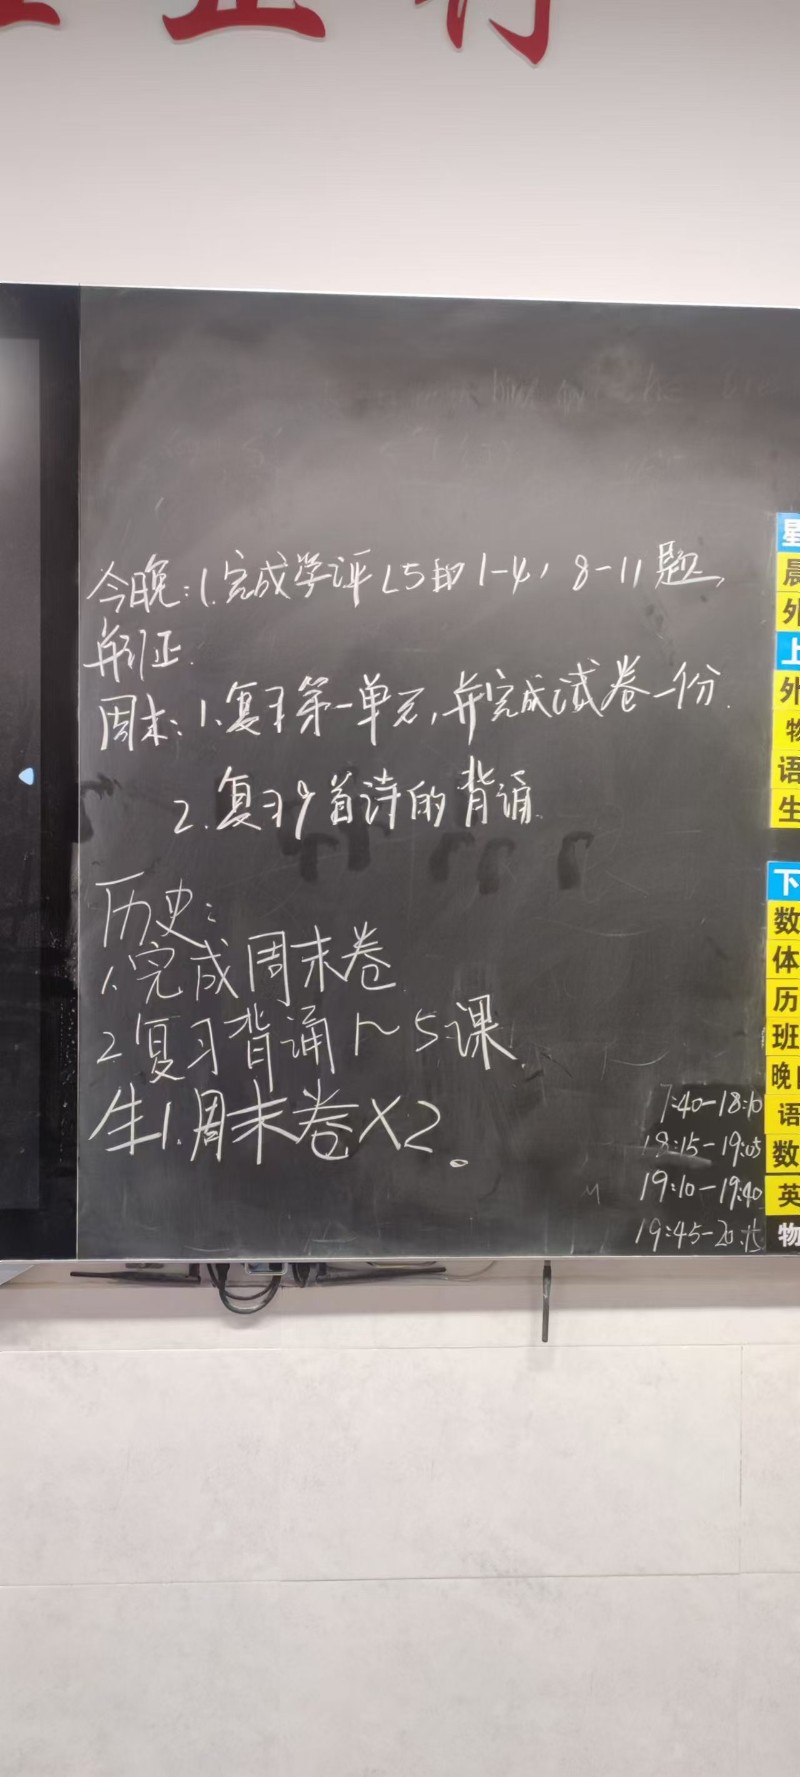 正行
今晚:1.完成学评L5的1-4,8-11题,
并订正.
周末:1.复习第一单元,并完成试卷一份.
2.复习9首诗的背诵.
历史:
1.完成周末卷.
2.复习背诵1~5课.
生1.周末卷X2。
7:40-18:10
18:15-19:05
19:10-19:40
19:45-20:15
星
晨
外
上
外
物
语
生
下
数
体
历
班
晚
语
数
英
物